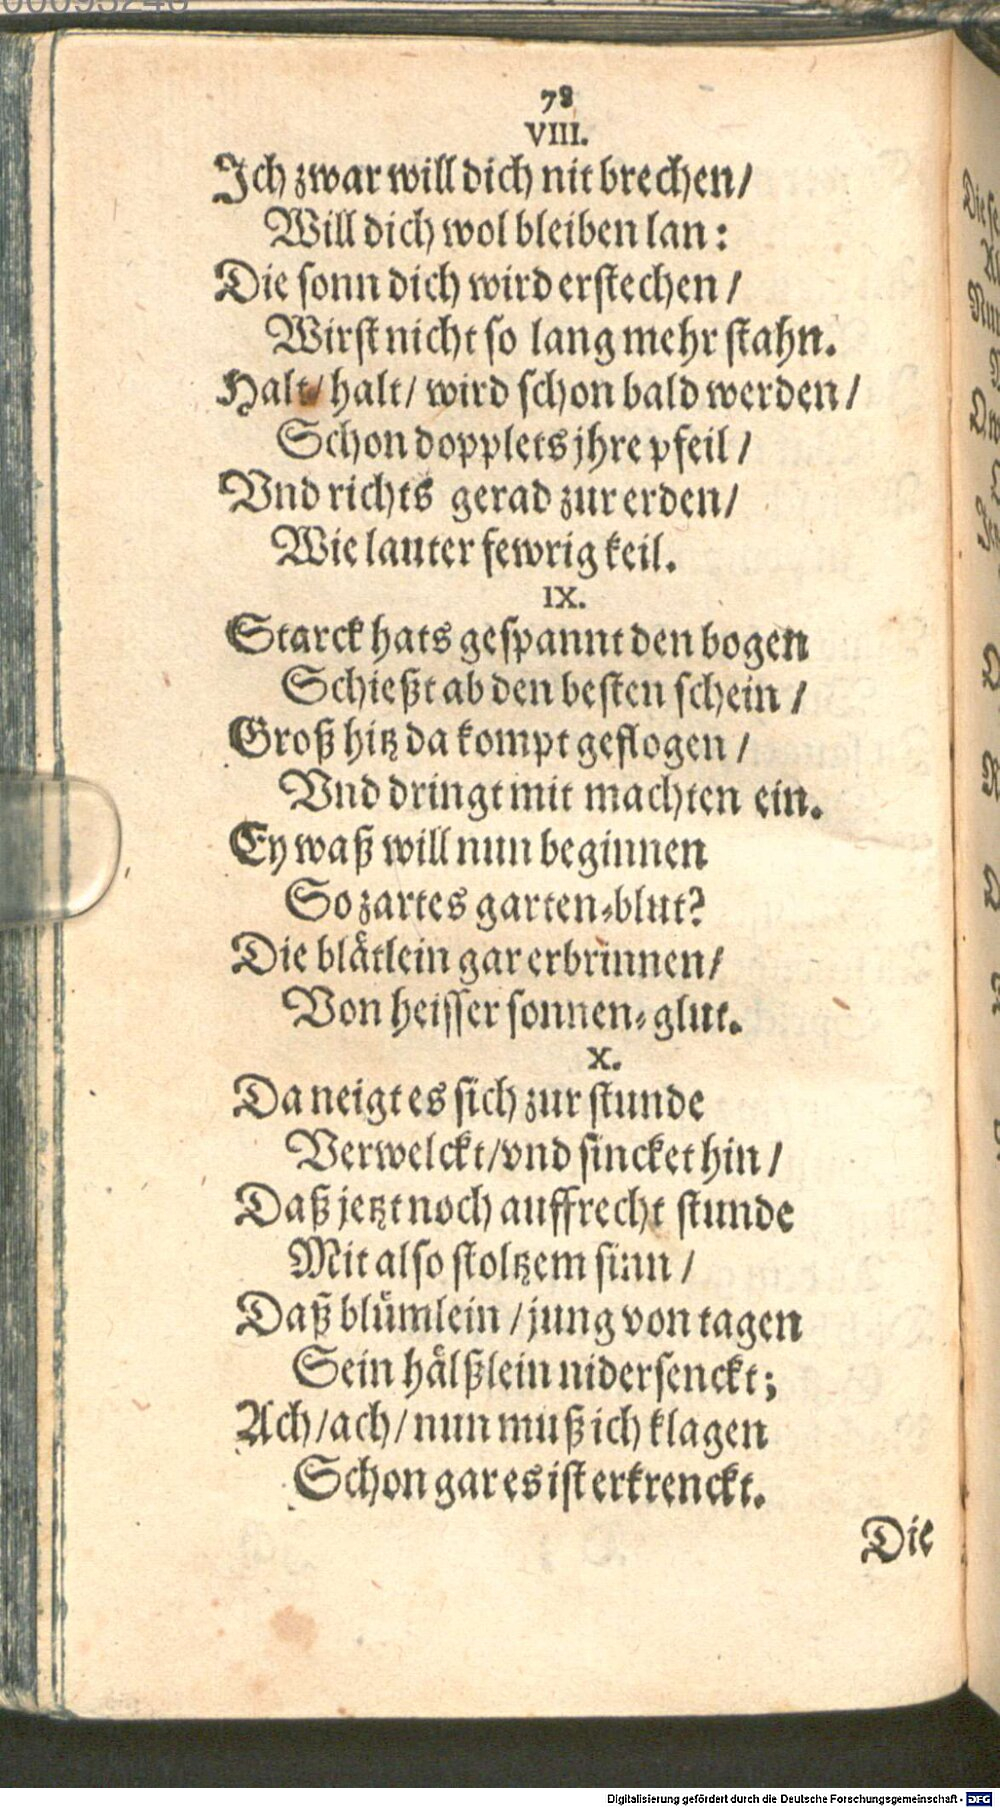 78
VIII.
Ich zwar will dich nit brechen/
Will dich wol bleiben lan:
Die sonn dich wird erstechen/
Wirst nicht so lang mehr stahn.
Halt/ halt/ wird schon bald werden/
Schon dopplets jhre pfeil/
Vnd richts gerad zur erden/
Wie lauter fewrig keil.
IX.
Starck hats gespannt den bogen
Schießt ab den besten schein/
Groß hitz da kompt geflogen/
Vnd dringt mit machten ein.
Ey waß will nun beginnen
So zartes garten-blut?
Die blätlein gar erbrinnen/
Von heisser sonnen-glut.
X.
Da neigt es sich zur stunde
Verwelckt/vnd sincket hin/
Daß jetzt noch auffrecht stunde
Mit also stoltzem sinn/
Daß blümlein/jung von tagen
Sein hälßlein nidersenckt;
Ach/ach/nun muß ich klagen
Schon gar es ist erkrenckt.
Die
Digitalisierung gefördert durch die Deutsche Forschungsgemeinschaft - DFG